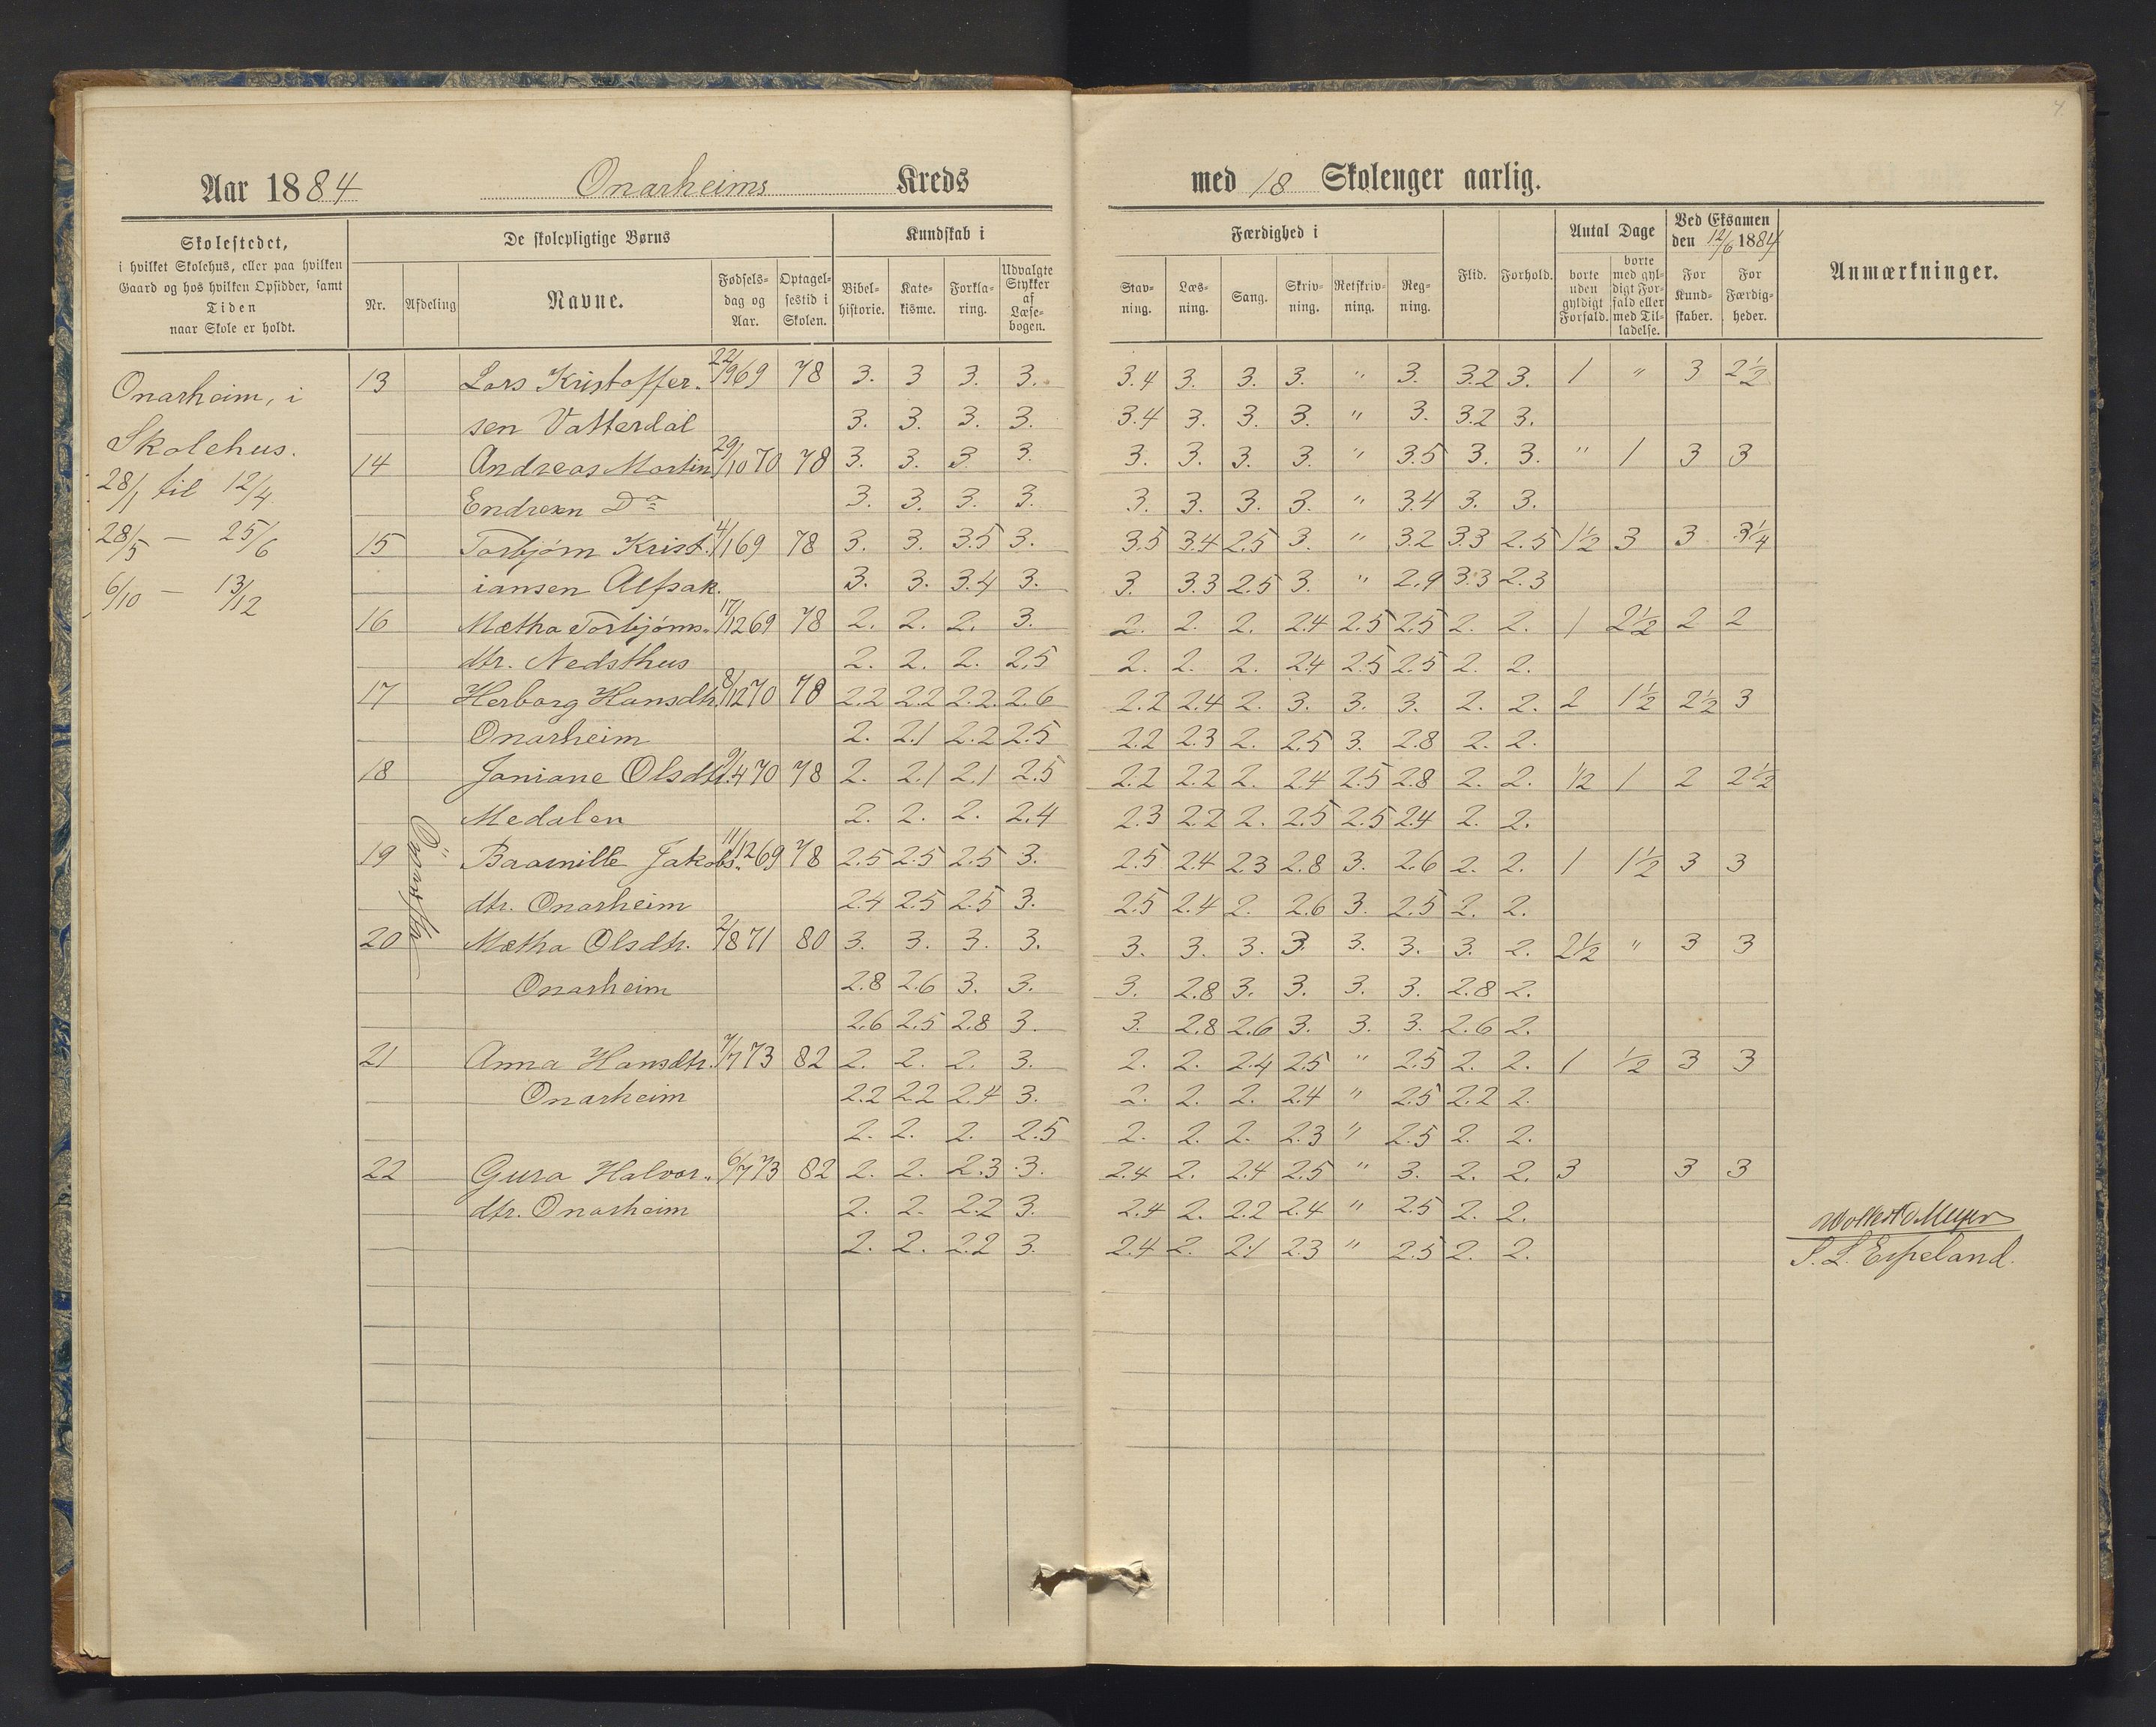 4
Aar 1884 Onarheims Kreds med 18 Skoleuger aarlig.
Skolestedet,
i hvilket Skolehus, eller paa hvilken
Gaard og hos hvilken Opsidder, samt
Tiden
naar Skole er holdt.
De skolepligtige Børns
Nr. Afdeling Navne. Fødselsdag og Aar. Optagelsestid i Skolen.
Kundskab i
Bibelhistorie. Katekisme. Forklaring. Udvalgte Stykker af Læsebogen.
Færdighed i
Stavning. Læsning. Sang. Skrivning. Retskrivning. Regning.
Flid. Forhold.
Antal Dage
borte uden gyldigt Forfald. borte med gyldigt Forfald eller med Tilladelse.
Ved Eksamen
den 12/6 1884
For Kundskaber. For Færdigheder.
Anmærkninger.
Onarheim, i
Skolehus.
28/1 til 12/4.
28/5 — 25/6
6/10 — 13/12
Överste
13 Lars Kristoffer- 22/9 69 78 3. 3 3. 3. 3.4 3. 3. 3. " 3. 3.2 3. 1 " 3 2½
sen Vatterdal 3. 3. 3. 3. 3.4 3. 3. 3. " 3. 3.2 3.
14 Andreas Martin 29/10 70 78 3. 3. 3 3. 3. 3. 3. 3. " 3.5 3. 3. " 1 3 3
Endresen Do 3. 3. 3. 3. 3. 3. 3. 3. " 3.4 3. 3.
15 Torbjørn Krist- 4/1 69 78 3. 3. 3.5 3. 3.5 3.4 2.5 3. " 3.2 3.3 2.5 1½ 3 3 3¼
iansen Alfsak. 3. 3. 3.4 3. 3. 3.3 2.5 3. " 2.9 3.3 2.3
16 Mætha Torbjørns- 17/12 69 78 2. 2. 2. 3. 2. 2. 2. 2.4 2.5 2.5 2. 2. 1 2½ 2 2
dtr. Nedsthus 2. 2. 2. 2.5 2. 2. 2. 2.4 2.5 2.5 2. 2.
17 Herborg Hansdtr. 8/12 70 78 2.2 2.2 2.2. 2.6 2.2 2.4 2. 3. 3. 3. 2. 2. 2 1½ 2½ 3
Onarheim 2. 2.1 2.2 2.5 2.2 2.3 2. 2.5 3. 2.8 2. 2.
18 Janiane Olsdtr. 9/4 70 78 2. 2.1 2.1 2.5 2.2 2.2 2. 2.4 2.5 2.8 2. 2. ½ 1 2 2½
Medalen 2. 2. 2. 2.4 2.3 2.2 2. 2.5 2.5 2.4 2. 2.
19 Baarnille Jakobs- 11/12 69 78 2.5 2.5 2.5 3. 2.5 2.4 2.3 2.8 3. 2.6 2. 2. 1 1½ 3 3
dtr. Onarheim 2.4 2.5 2.5 3. 2.5 2.4 2. 2.6 3. 2.5 2. 2.
20 Mætha Olsdtr. 2/8 71 80 3. 3. 3. 3. 3. 3. 3. 3. 3. 3. 3. 2. 2½ " 3 3
Onarheim 2.8 2.6 3. 3. 3. 2.8 3. 3. 3. 3. 2.8 2.
2.6 2.5 2.8 3. 3. 2.8 2.6 3. 3. 3. 2.6 2.
21 Anna Hansdtr. 7/7 73 82 2. 2. 2. 3. 2. 2. 2.4 2.5 " 2.5 2. 2. 1 ½ 3 3
Onarheim 2.2 2.2 2.4 3. 2. 2. 2. 2.4 " 2.5 2.2 2.
2. 2. 2. 2.5 2. 2. 2. 2.3 " 2.5 2. 2.
22 Gura Halvor- 6/7 73 82 2. 2. 2.3 3. 2.4 2. 2.4 2.5 " 3. 2. 2. 3 3 3
dtr. Onarheim 2. 2. 2.2 3. 2.4 2. 2.2 2.4 " 2.5 2. 2.
2. 2. 2.2 3. 2.4 2. 2.1 2.3 " 2.5 2. 2.
Meyer
S. L. Espeland.